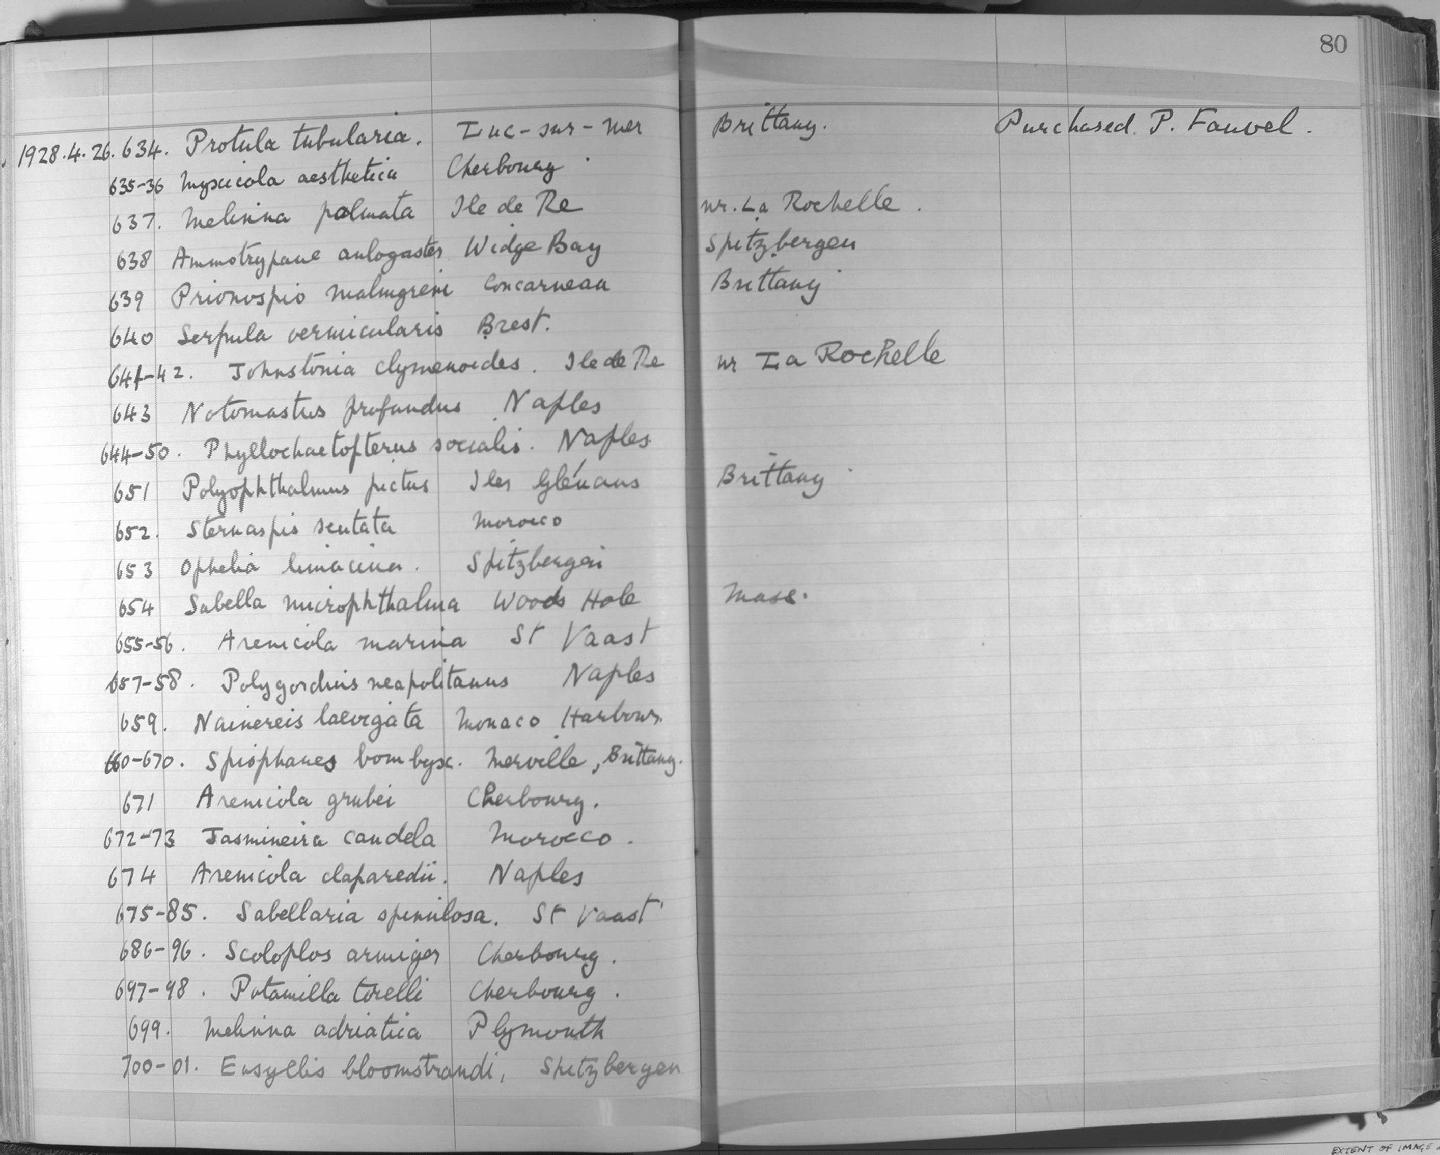 80
1928.4.26.634. Protula tubularia. Luc-sur-Mer Brittany. Purchased. P. Fauvel.
635-36 Myxicola aesthetica Cherbourg
637. Melinna palmata Ile de Re nr. La Rochelle.
638 Ammotrypane aulogaster Widge Bay Spitzbergen
639 Prionospio malmgreni Concarneau Brittany
640 Serpula vermicularis Brest.
641-42. Johnstonia clymenoides. Ile de Re nr La Rochelle
643 Notomastus profundus Naples
644-50. Phyllochaetopterus socialis. Naples
651 Polyophthalmus pictus Iles Glénans Brittany
652. Sternaspis scutata Morocco
653 Ophelia limacina. Spitzbergen
654 Sabella microphthalma Woods Hole Mass.
655-56. Arenicola marina St Vaast
657-58. Polygordius neapolitanus Naples
659. Nainereis laevigata Monaco Harbour
660-670. Spiophanes bombyx. Merville, Brittany.
671 Arenicola grubei Cherbourg.
672-73 Jasmineira candela Morocco.
674 Arenicola claparedii. Naples
675-85. Sabellaria spinulosa. St Vaast
686-96. Scoloplos armiger Cherbourg.
697-98. Potamilla torelli Cherbourg.
699. Melinna adriatica Plymouth
700-01. Eusyllis bloomstrandi, Spitzbergen
EXTENT OF IMAGE